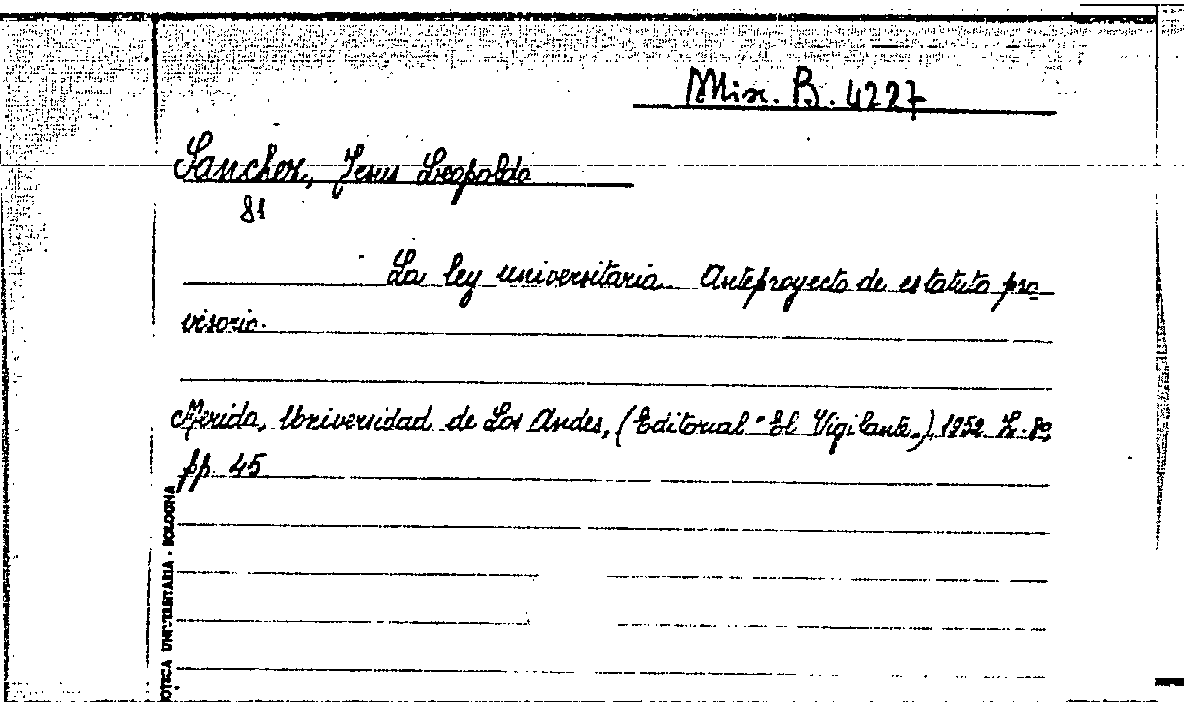 Misc. B. 4227
Sanchez, Jesus Leopoldo
81
La ley universitaria. Anteproyecto de estatuto pro-
visorio.
Merida, Universidad de Los Andes, (Editorial "El Vigilante„) 1952. 8º
pp. 45
OTECA UNIVERSITARIA - BOLOGNA